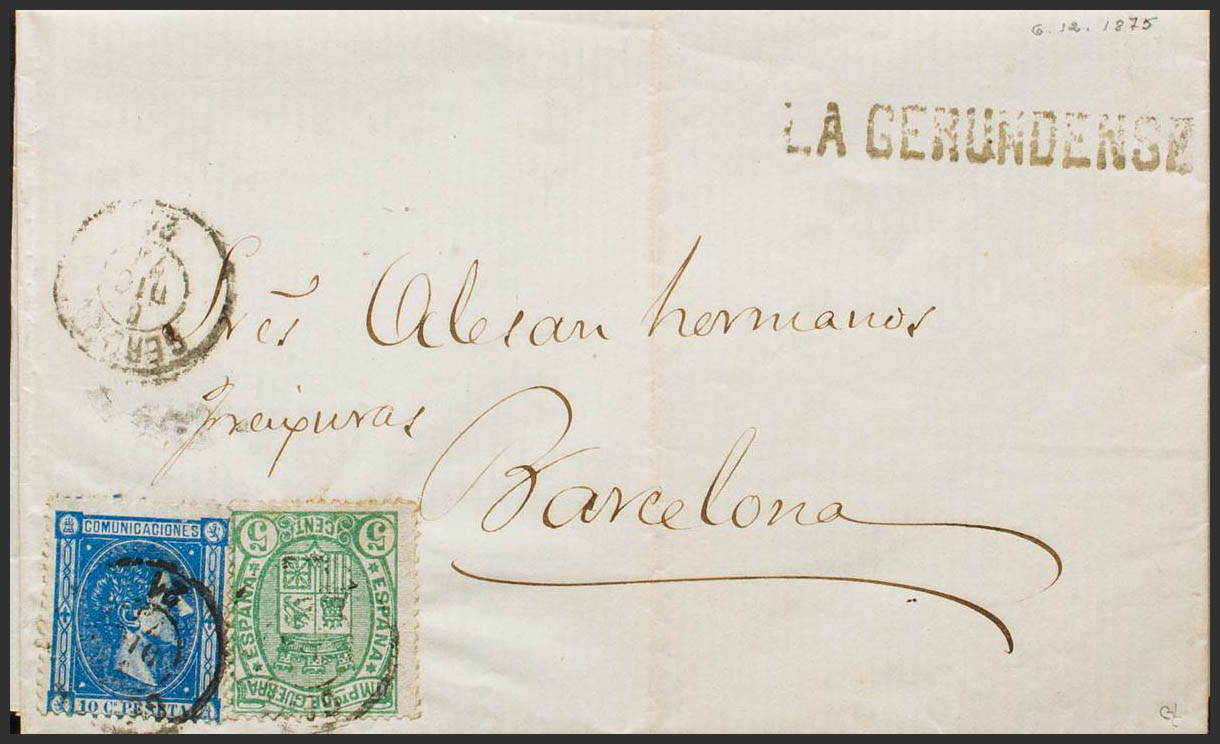 6. 12. 1875
LA GERUNDENSE
GERO
DIC
Sres Alesan hermanos
freixuras
Barcelona
COMUNICACIONES
10 Cs PESETA
5 CENTs 5
ESPAÑA
ESPAÑA
IMPto DE GUERRA